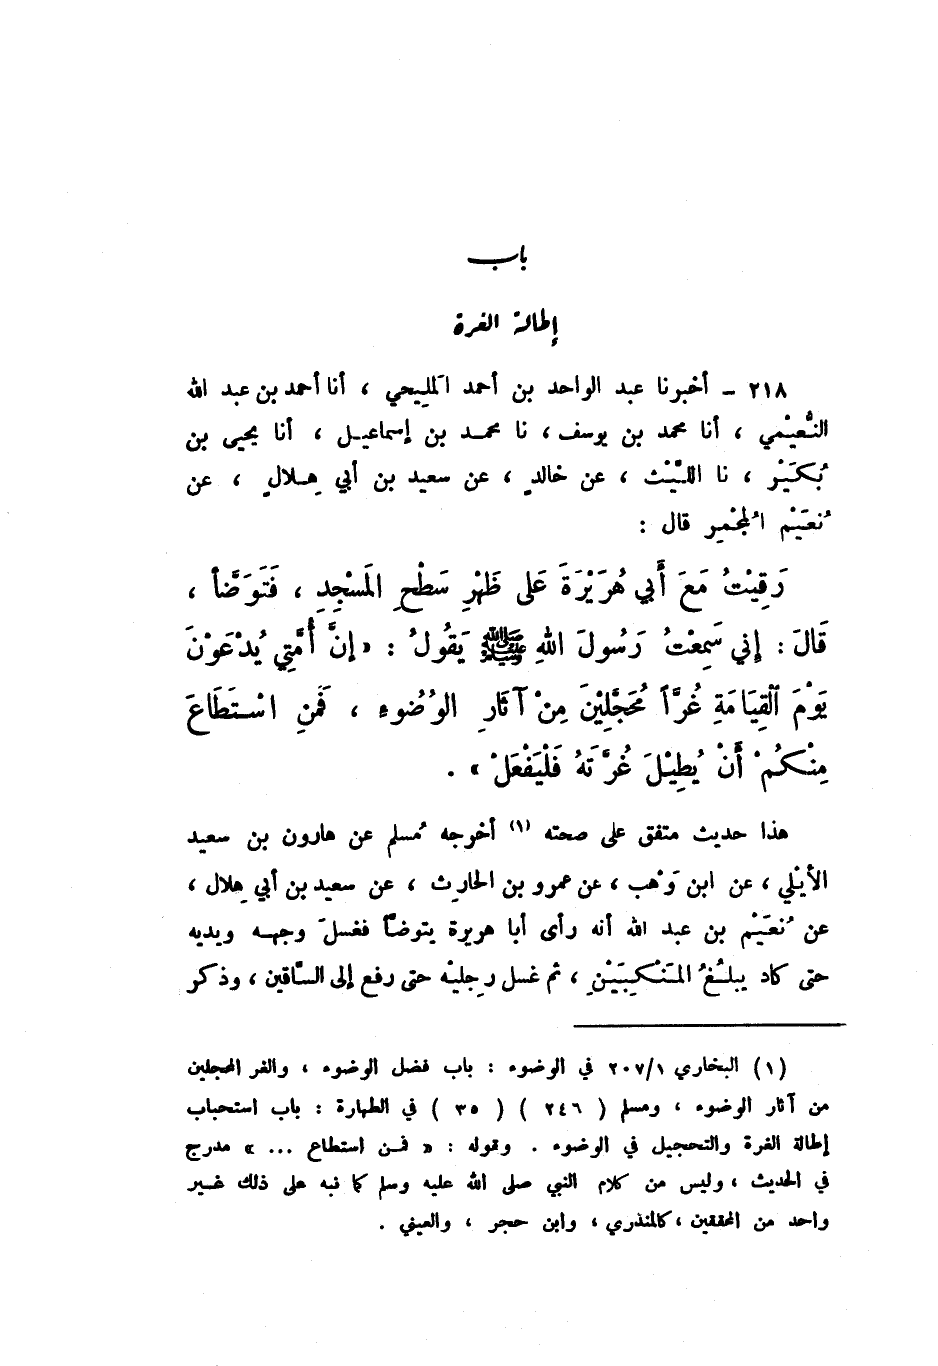 باب
إطالة الغرة
٢١٨ – أخبرنا عبد الواحد بن أحمد المَليحي ، أنا أحمد بن عبد الله
النُّعَيْمي ، أنا محمد بن يوسف ، نا محمد بن إسماعيل ، أنا يحيى بن
بُكَيْر ، نا اللَّيْث ، عن خالدٍ ، عن سعيد بن أبي هِلالٍ ، عن
نُعَيْم المُجْمِر قال :
رَقِيْتُ مَعَ أَبي هُرَيْرَةَ عَلى ظَهْرِ سَطْحِ المَسْجِدِ ، فَتَوَضَّأَ ،
قَالَ : إِني سَمِعْتُ رَسُولَ اللهِ ﷺ يَقُولُ : « إنَّ أُمَّتِي يُدْعَوْنَ
يَوْمَ الْقِيَامَةِ غُرَّاً مُحَجَّلِيْنَ مِنْ آثَارِ الوُضُوءِ ، فَمَنِ اسْتَطَاعَ
مِنْكُمْ أَنْ يُطِيْلَ غُرَّتَهُ فَلْيَفْعَلْ » .
هذا حديث متفق على صحته (١) أخرجه مُسلم عن هارون بن سعيد
الأيْلي ، عن ابن وَهْب ، عن عمرو بن الحارِث ، عن سعيد بن أبي هِلال ،
عن نُعَيْم بن عبد الله أنه رأى أبا هريرة يتوضأ فغسلَ وجهه ويديه
حتى كاد يبلُغُ المَنْكِبَيْنِ ، ثم غسل رِجليْه حتى رفع إلى السَّاقين ، وذكر
(١) البخاري ٢٠٧/١ في الوضوء : باب فضل الوضوء ، والغر المحجلين
من آثار الوضوء ، ومسلم ( ٢٤٦ ) ( ٣٥ ) في الطهارة : باب استحباب
إطالة الغرة والتحجيل في الوضوء . وقوله : « فمن استطاع ... » مدرج
في الحديث ، وليس من كلام النبي صلى الله عليه وسلم كما نبه على ذلك غير
واحد من المحققين ، كالمنذري ، وابن حجر ، والعيني .